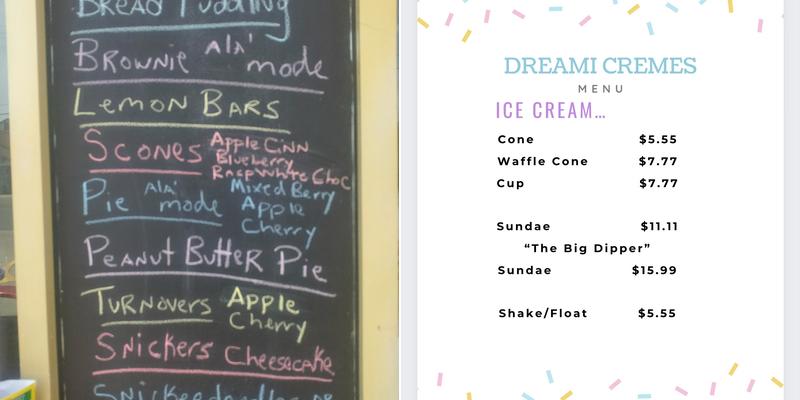 Bread Pudding
Brownie Ala' mode
Lemon Bars
Scones Apple Cinn
Blueberry
Rasp White Choc
Pie Ala' mode Mixed Berry
Apple
Cherry
Peanut Butter Pie
Turnovers Apple
Cherry
Snickers Cheesecake
DREAMI CREMES
MENU
ICE CREAM...
Cone $5.55
Waffle Cone $7.77
Cup $7.77
Sundae $11.11
“The Big Dipper”
Sundae $15.99
Shake/Float $5.55